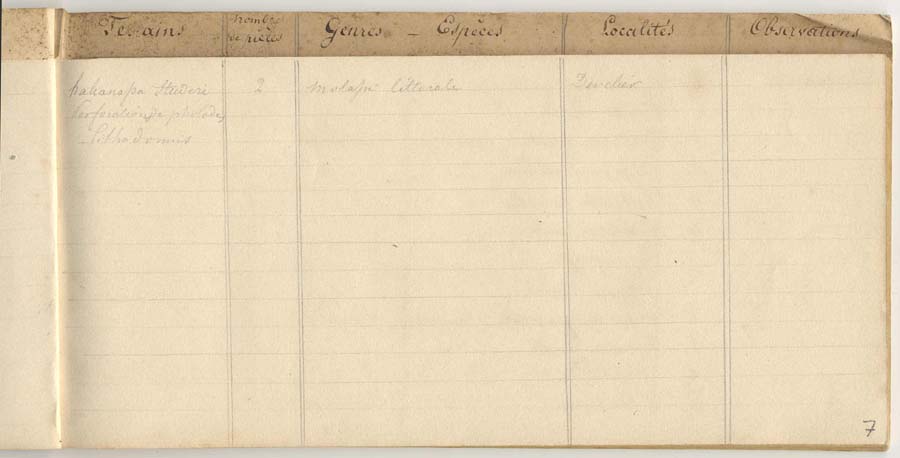 Terrains Nombre de pièces Genres – Espèces Localités Observations
Studeri 2 molasse littorale Develier
Perforations de pholades
Lithodomus
7